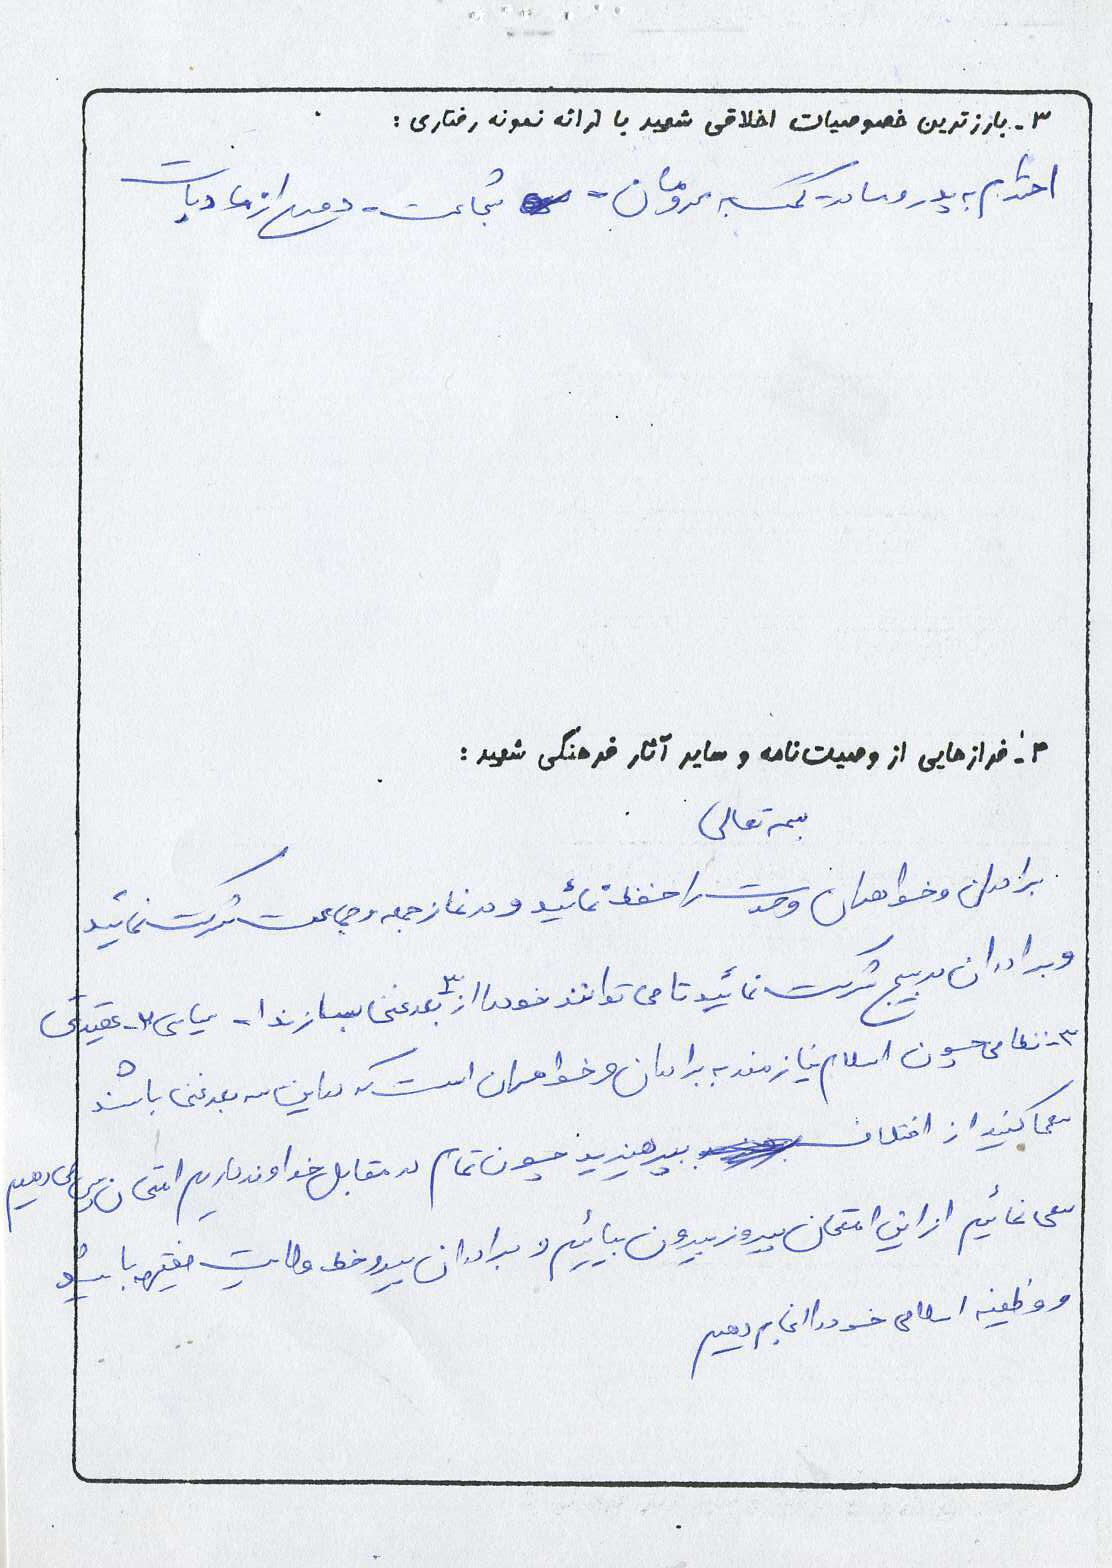 ۳- بارزترین خصوصیات اخلاقی شهید با ارائه نمونه رفتاری :
احترام به پدر و مادر - کمک به محرومان - شجاعت - دوری از مادیات
۴- فرازهایی از وصیت‌نامه و سایر آثار فرهنگی شهید :
بسمه تعالی
برادران و خواهران وحدت را حفظ نمائید و در نماز جمعه و جماعت شرکت نمائید
و برادران در بسیج شرکت نمائید تا می توانند خود را از ۳ بعد غنی بسازند ۱- سیاسی ۲- عقیدتی
۳- نظامی چون اسلام نیازمند به برادران و خواهران است که در این سه بعد غنی باشند
سعی کنید از اختلاف بپرهیزید چون تمام در مقابل خداوند داریم امتحان پس می دهیم
سعی نمائیم از این امتحان پیروز بیرون بیائیم و برادران پیرو خط ولایت فقیه باشید
و وظیفه اسلامی خود را انجام دهیم